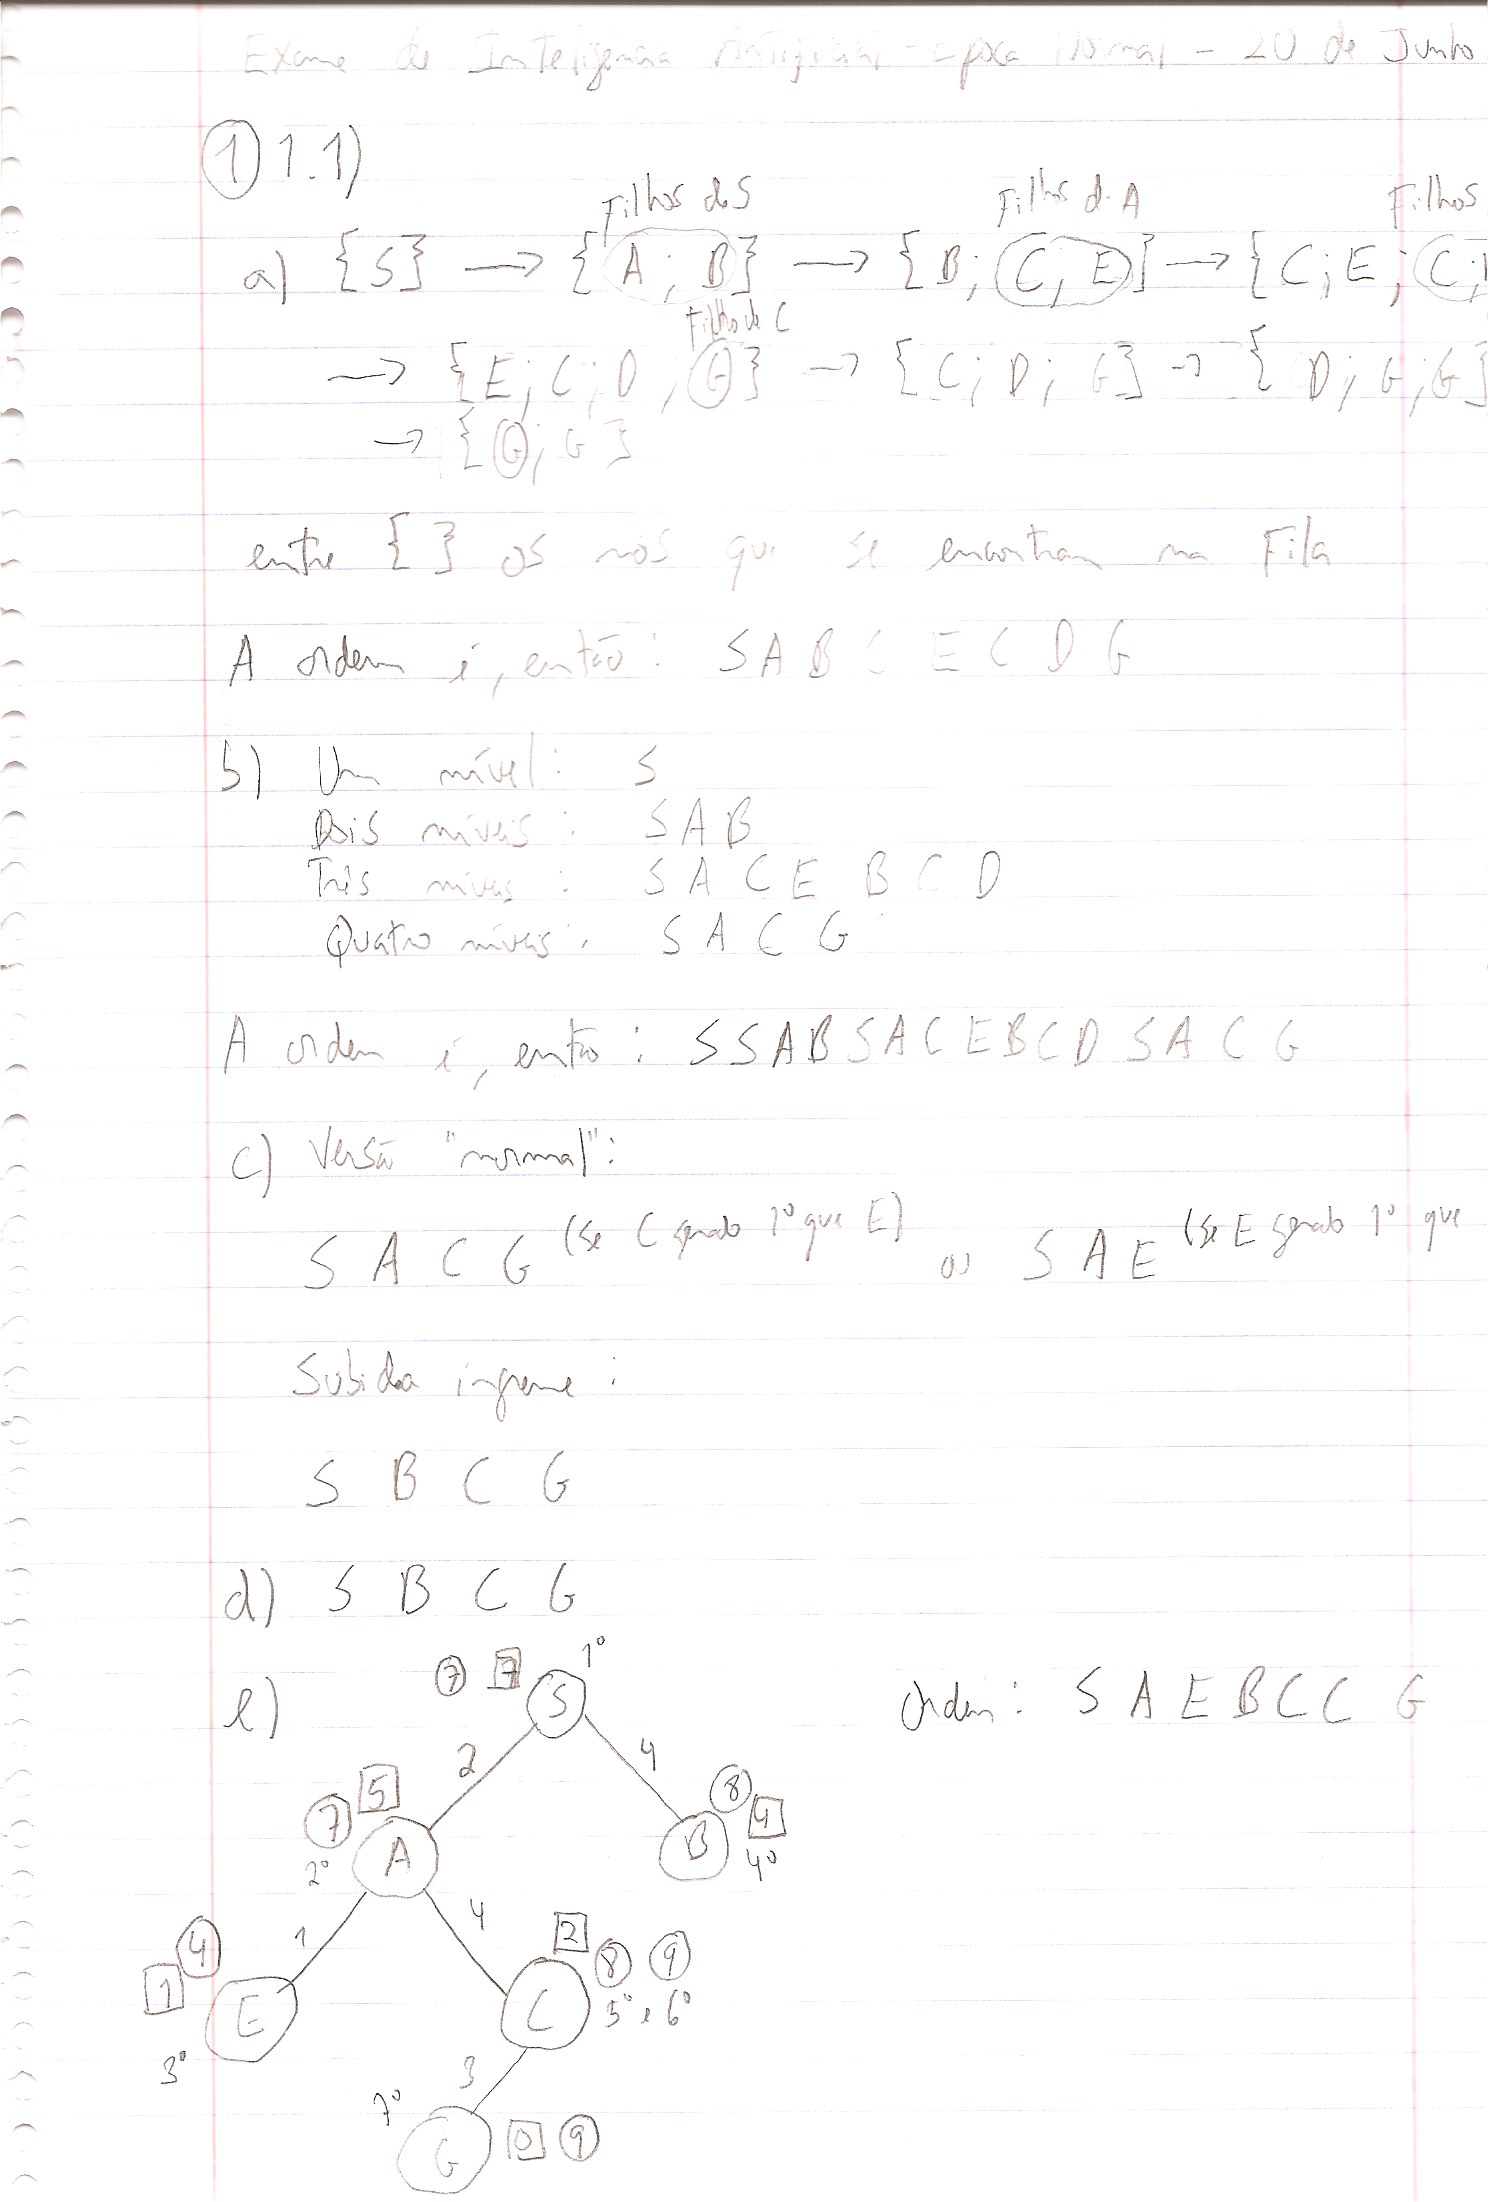 Exame de Inteligência Artificial - Epoca Normal - 20 de Junho
① 1.1)
Filhos de S Filhos de A Filhos
a) {S} → {A; B} → {B; C; E} → {C; E; C;
Filho de C
→ {E; C; D; G} → {C; D; G} → {D; G; G}
→ {G; G}
entre { } os nós que se encontram na Fila
A ordem é, então: S A B C E C D G
b) Um nível: S
Dois níveis: S A B
Três níveis: S A C E B C D
Quatro níveis: S A C G
A ordem é, então: S S A B S A C E B C D S A C G
c) Versão "normal":
S A C G (se C gerado 1º que E) ou S A E (se E gerado 1º que
Subida íngreme:
S B C G
d) S B C G
e) 7 7 S 1º Ordem: S A E B C C G
2 4
7 5 A 2º 8 9 B 4º
1 4
4 1 E 3º 2 C 8 9 5º e 6º
3
7º G 0 9